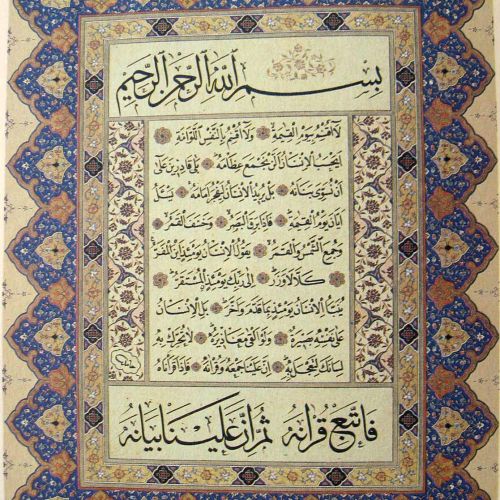 بسم الله الرحمن الرحيم
لا اقسم بيوم القيمة ولا اقسم بالنفس اللوامة
ايحسب الانسان الن نجمع عظامه بلى قادرين على
ان نسوى بنانه بل يريد الانسان ليفجر امامه يسئل
ايان يوم القيمة فاذا برق البصر وخسف القمر
وجمع الشمس والقمر يقول الانسان يومئذ اين المفر
كلا لا وزر الى ربك يومئذ المستقر
ينبؤا الانسان يومئذ بما قدم واخر بل الانسان
على نفسه بصيرة ولو القى معاذيره لا تحرك به
لسانك لتعجل به ان علينا جمعه وقرانه فاذا قراناه
فاتبع قرانه ثم ان علينا بيانه